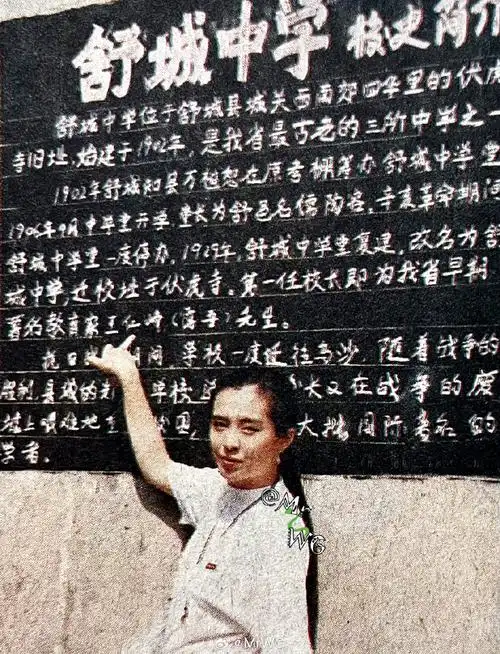 舒城中学 校史简介
舒城中学位于舒城县城关西南郊四华里的伏虎
寺旧址,始建于1902年,是我省最古老的三所中学之一
1902年舒城知县万植恕在原考棚筹办舒城中学堂
1906年9月中学堂开学,堂长为舒邑名儒陶. 辛亥革命期间
舒城中学堂一度停办,1925年,舒城中学堂复建,改名为舒
城中学,迁校址于伏虎寺。第一任校长即为我省早期
著名教育家王仁峰先生。
抗日 期间,学校一度迁往乌沙,随着战争的
胜利,县城的 学校 又在战争的废
墟上艰难地 大批国际著名的
学者。
@Mr
W6
@MrW